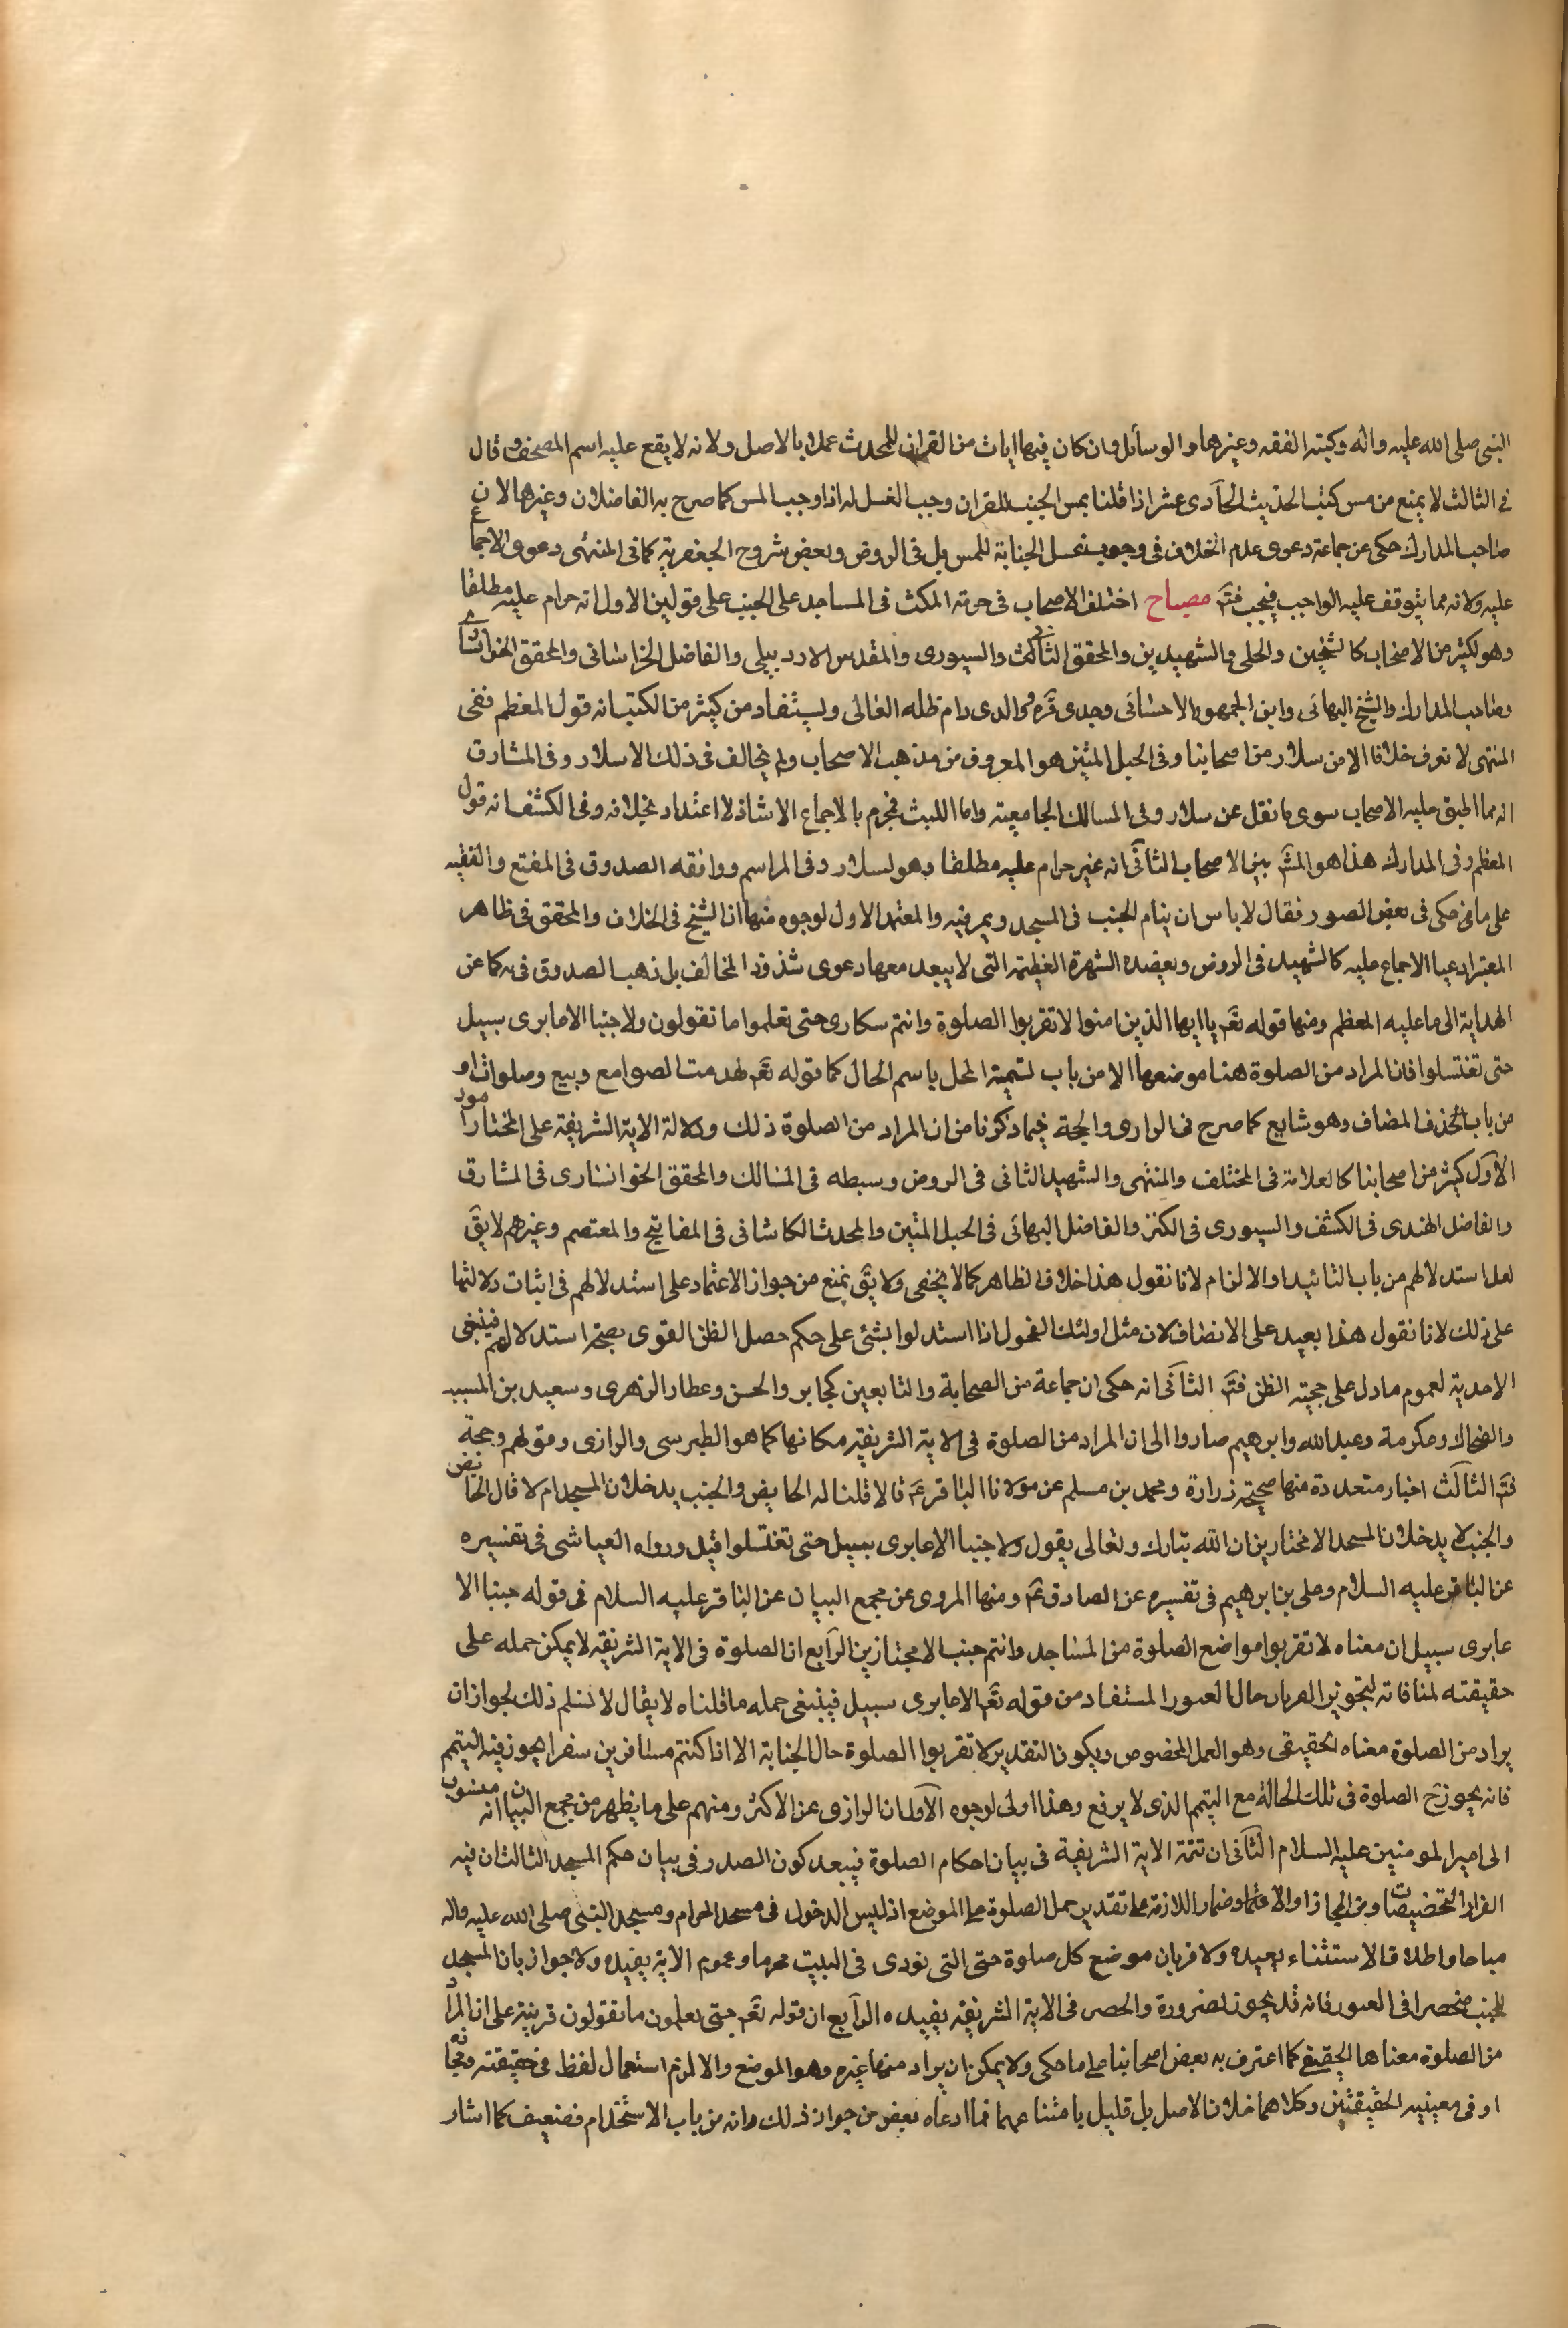 النبى صلى الله عليه واله وكتب الفقه وغيرها والرسائل وان كان فيها ايات من القران للمحدث عملا بالاصل ولانه لا يقع عليه اسم المصحف وقال
فى الثالث لا يمنع من مس كتب الحديث الحادى عشر اذا قلنا بمس الجنب للقران وجب الغسل له اذا وجب المس كما صرح به الفاضلان وغيرها لان
صاحب المدارك حكى عن جماعة دعوى عدم الخلاف فى وجوب غسل الجنابة للمس بل فى الروض وبعض شروح الجعفرية كما فى المنتهى دعوى الاجماع
عليه ولانه مما يتوقف عليه الواجب فيجب فتم مصباح اختلف الاصحاب فى حرمة المكث فى المساجد على الجنب على قولين الاول انه حرام عليه مطلقا
وهو لكثير من الاصحاب كالشيخين والحلى والشهيدين والمحقق الثالث والسيورى والمقدس الاردبيلى والفاضل الخراسانى والمحقق الخوانسارى
وصاحب المدارك والشيخ البهائى وابن الجمهور الاحسائى وجدى قره ووالدى دام ظله العالى ويستفاد من كثير من الكتب انه قول المعظم ففى
المنتهى لا نعرف خلافا الا من سلار من اصحابنا وفى الحبل المتين هو المعروف من مذهب الاصحاب ولم يخالف فى ذلك الا سلار وفى المشارق
انه مما اطبق عليه الاصحاب سوى ما نقل عن سلار وفى المسالك الجامعية واما اللبث فيحرم بالاجماع الا شاذ لا اعتداد بخلافه وفى الكشف انه قول
المعظم وفى المدارك هذا هو المشَّ بين الاصحاب الثانى انه غير حرام عليه مطلقا وهو لسلار وفى المراسم ووافقه الصدوق فى المقنع والفقيه
على ما حكى فى بعض الصور فقال لا باس ان ينام الجنب فى المسجد ويمر فيه والمعتمد الاول لوجوه منها ان الشيخ فى الخلاف والمحقق فى ظاهر
المعتبر ادعيا الاجماع عليه كالشهيد فى الروض ويعضده الشهرة العظيمة التى لا يبعد معها دعوى شذوذ المخالف بل ذهب الصدوق فى كما عن
الهداية الى ما عليه المعظم ومنها قوله تعَم يا ايها الذين امنوا لا تقربوا الصلوة وانتم سكارى حتى تعلموا ما تقولون ولا جنبا الا عابرى سبيل
حتى تغتسلوا فان المراد من الصلوة هنا موضعها الا من باب تسمية المحل باسم الحال كما قوله تعَم لهدمت الصوامع وبيع وصلوات او
من باب الحذف المضاف وهو شايع كما صرح فى الوارى والحجة فيما ذكرنا من ان المراد من الصلوة ذلك ودلالة الاية الشريفة على المختار امور
الاول كثير من اصحابنا كالعلامة فى المختلف والمنتهى والشهيد الثانى فى الروض وسبطه فى المسالك والمحقق الخوانسارى فى المشارق
والفاضل الهندى فى الكشف والسيورى فى الكنز والفاضل البهائى فى الحبل المتين والمحدث الكاشانى فى المفاتيح والمعتصم وغيرهم لا يقَ
لعل استدلالهم من باب التائيد او الالزام لانا نقول هذا خلاف الظاهر كما لا يخفى ولا يقَ نمنع من جواز الاعتماد على استدلالهم فى اثبات دلالتها
على ذلك لانا نقول هذا بعيد على الانصاف لان مثل اولئك الفحول اذا استدلوا بشئ على حكم حصل الظن القوى بصحة استدلالهم فينبغى
الاحدية لعموم ما دل على حجية الظن فتَم الثانى انه حكى ان جماعة من الصحابة والتابعين كجابر والحسن وعطا والزهرى وسعيد بن المسيب
والضحاك وعكرمة وعبد الله وابرهيم صاروا الى ان المراد من الصلوة فى الاية الشريفة مكانها كما هو الطبرسى والرازى وقولهم وحجة
فتَم الثالث اخبار متعددة منها صحيحة زرارة ومحمد بن مسلم عن مولانا الباقر عَم قالا قلنا له الحايض والجنب يدخلان المسجد ام لا قال الحايض
والجنب لا يدخلان المسجد الا مجتازين ان الله تبارك وتعالى يقول ولا جنبا الا عابرى سبيل حتى تغتسلوا قيل ورواه العياشى فى تفسيره
عن الباقر عليه السلام وعلى بن ابرهيم فى تفسيره عن الصادق عَم ومنها المروى عن مجمع البيان عن الباقر عليه السلام فى قوله جنبا الا
عابرى سبيل ان معناه لا تقربوا مواضع الصلوة من المساجد وانتم جنب الا مجتازين الرابع ان الصلوة فى الاية الشريفة لا يمكن حمله على
حقيقته لمنافاته لتجويز القربان حال العبور المستفاد من قوله تعَم الا عابرى سبيل فينبغى حمله ما قلناه لا يقال لا نسلم ذلك لجواز ان
يراد من الصلوة معناه الحقيقى وهو العمل المخصوص ويكون التقدير لا تقربوا الصلوة حال الجنابة الا اذا كنتم مسافرين سفرا يجوز فيه التيمم
فانه يجوز حَ الصلوة فى تلك الحالة مع التيمم الذى لا يرفع وهذا اولى لوجوه الاول ان الرازى عن الاكثر ومنهم على ما يظهر من مجمع البيان انه منسوب
الى امير المومنين عليه السلام الثانى ان تتمة الاية الشريفة فى بيان احكام الصلوة فيبعد كون الصدر فى بيان حكم المسجد الثالث ان فيه
الفرار التخضيصات ومن المجاز او الاضمار اللازمة على تقدير حمل الصلوة على الموضع اذ ليس الدخول فى مسجد الحرام ومسجد النبى صلى الله عليه واله
مباحا واطلاق الاستثناء يعيده ولا قربان موضع كل صلوة حتى التى نودى فى البيت محرما وعموم الاية يفيده ولا جواز بان المسجد
للجنب منحصرا فى العبور فانه قد يجوز لضرورة والحصر فى الاية الشريفة يفيده الرابع ان قوله تعَم حتى تعلمون ما تقولون قرينة على ان المراد
من الصلوة معناها الحقيقى كما اعترف به بعض اصحابنا على ما حكى ولا يمكن ان يراد منها غيره وهو الموضع والا لزم استعمال لفظ فى حقيقته ومجازه
او فى معنييه الحقيقتين وكلاهما خلاف الاصل بل قليل بامتناعهما فما ادعاه بعض من جواز ذلك وانه من باب الاستخدام فضعيف كما اشار